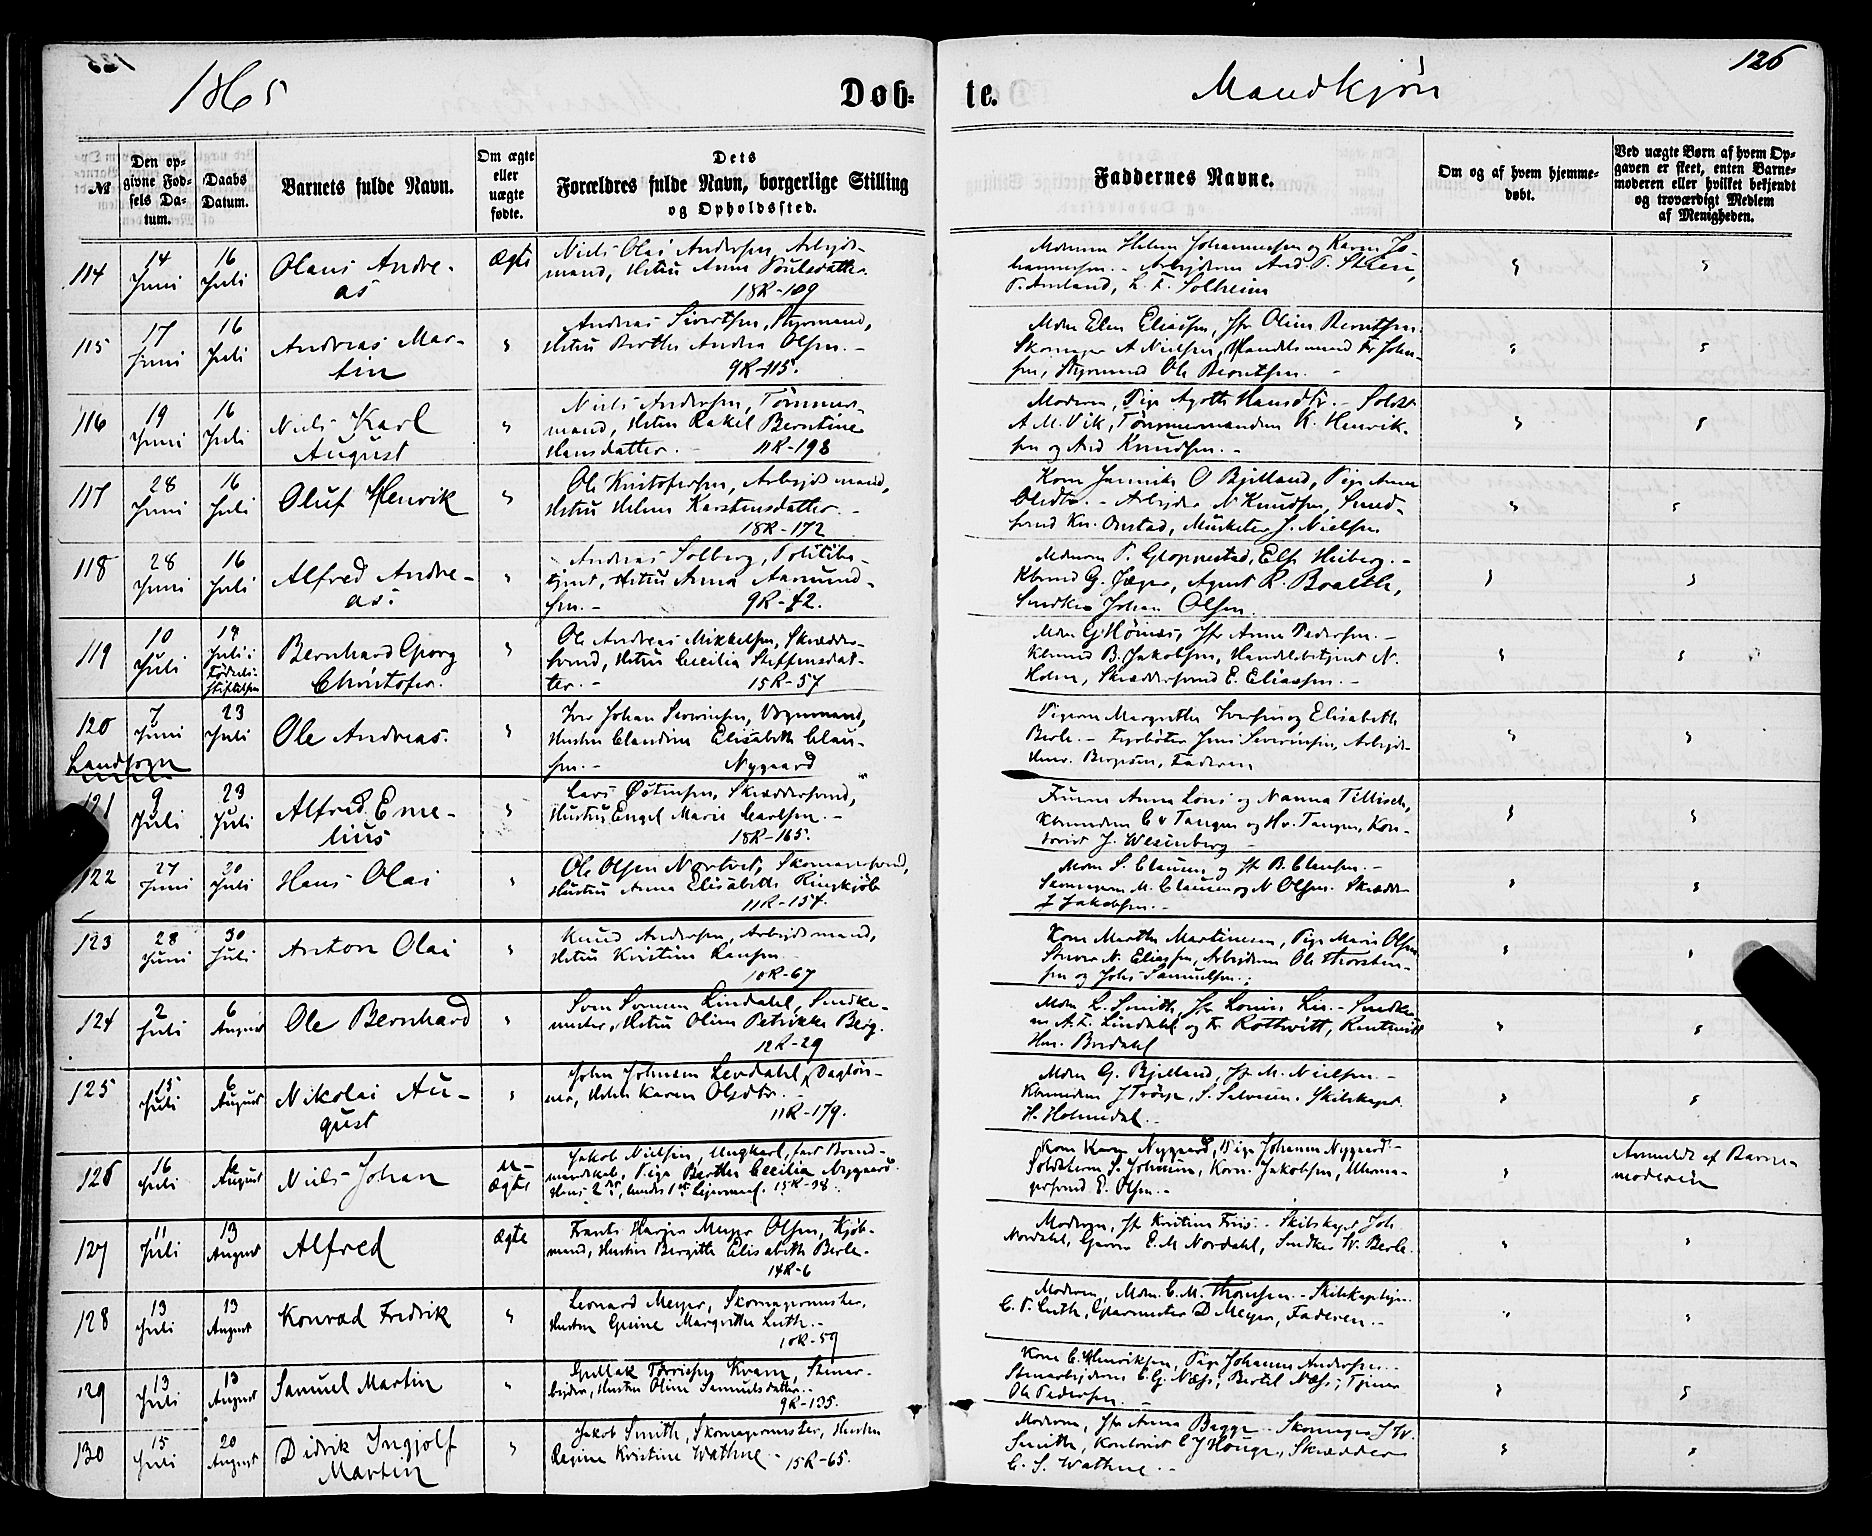 1865
Døb-
te.
Mandkjøn
126
№
Den opgivne Fødsels Datum.
Daabs Datum.
Barnets fulde Navn.
Om ægte eller uægte fødte.
Dets Forældres fulde Navn, borgerlige Stilling og Opholdssted.
Faddernes Navne.
Om og af hvem hjemmedøbt.
Ved uægte Børn af hvem Opgaven er skeet, enten Barnemoderen eller hvilket bekjendt og troværdigt Medlem af Menigheden.
114
14 Juni
16 Juli
Olaus Andre-
as
Ægte
Niels Olai Andersen, Arbejds-
mand, Hstru Anna Poulsdatter.
18R-109
Johannessen og Karen Jo-
hannessen.- And. P. Steen,
P. Amland, L. T. Solheim
115
17 Juni
16 Juli
Andreas Mar-
tin
Andreas Sivertsen, Styrmand,
Hstru Berthe Andrea Olsen.-
9R-115.
Mdm Elen Eliassen, Jfr Olina Berntsen
Skomager A Nielsen, Handelsmand Fr. John-
sen, Styrmand Ole Berntsen.-
116
19 Juni
16 Juli
Niels Karl
August
Niels Andersen, Tømmer-
mand, Hstru Rakel Berntine
Hansdatter.- 11R-198
Moderen, Pige Agathe Hansdtr.- Soldat
A. M. Vik, Tømmermændene K. Henrik-
sen og And Knudsen.-
117
28 Juni
16 Juli
Oluf Henrik
Ole Kristofersen, Arbejdsmand,
Hstru Helene Karstensdatter.-
18R-172
Kone Jannike O Bjelland, Pige Anne
Olsdtr.- Arbejder N Knudsen, Smed-
svend Kn. Onstad, Musketer J. Nielsen
118
28 Juni
16 Juli
Alfred Andre-
as.
Andreas Solberg, Politibe-
tjent, Hstru Anna Aamund-
sen.- 9R-42.
P. Gloppestad, Else Heiberg.-
Kbmnd G. Jæger, Agent R. Boalth,
Snedker Johan Olsen.
119
10 Juli
19 Juli
Fødsels-
stiftelsen
Bernhard Georg
Christofer.
Ole Andreas Mikkelsen, Skrædder-
svend, Hstru Cecilia Steffensdat-
ter.- 15R-57
Mdm G Hørnæs, Jfr Anna Pedersen.-
Kbmnd B. Jakobsen, Handelsbetjent N.
Holm, Skræddersvend E. Eliassen.-
120
Landsogn
7 Juni
23 Juli
Ole Andreas.
Iver Johan Severinsen, Vognmand,
Hustru Claudine Elisabeth Clau-
sen.- Nygaard
Pigerne Margrethe Iversen og Elisabeth
Berle.- Fyrbøter Jens Severinsen, Arbejds-
Bergesen, Faderen
121
9 Juli
23 Juli
Alfred Eme-
lius
Lars Østensen, Skræddersvend,
Hustru Engel Marie Carlsen.-
18R-165.
Fruerne Anna Lous og Nanna Tillisch,
Kbmændene C v Tangen og H v. Tangen, Kon-
torist J. Wesenberg
122
27 Juni
30 Juli
Hans Olai
Ole Olsen Nortvet, Skomagersvend,
Hustru Anna Elisabeth Ringkjøb
11R-154.
Mdm S. Clausen og Jfr B. Clausen.-
M. Clausen og N Olsen. Skrædder
J Jakobsen.-
123
28 Juni
30 Juli
Anton Olai
Knud Andersen, Arbejdsmand,
Hstru Kristine Hansen
10R-67
Kone Marthe Martinesen, Pige Marie Olsen
N. Eliassen, Arbejderne Ole Thorsten-
sen og Johs Samuelsen.
124
2 Juli
6 August
Ole Bernhard
Sven Svensen Lindahl, Snedker-
mester, Hstru Oline Petrikke Berg.
12R-29
Mdm L. Smith, Jfr Lovise Lie.- Snedker-
ne A. L. Lindahl og Fr. Rothwitt, Rentemstr
Hm. Bredahl
125
15 Juli
6 August
Nikolai Au-
gust
John Johnsen Levdahl, Dagløn-
ner, Hstru Karen Olsdtr.-
11R-179.
Mdm G. Bjelland, Jfr M. Nielsen.-
Kbmændene J Trøye, S. Salvesen. Skibskapt.
H. Holmedal.-
126
16 Juli
6 August
Niels Johan
u-
ægte
Jakob Nielsen, Ungkarl, fast Brand-
mandskab, Pige Berthe Cecilia Nygaard.
Hans 2det, hendes 1ste Lejermaal. 15R-38.
Kone Karen Nygaard, Pige Johanna Nygaard.-
Soldaterne S. Johnsen, Korn. Jakobsen,
E. Olsen.-
Anmeldt af Barne-
moderen
127
11 Juli
13 August
Alfred
ægte
Frants Harjer Meyer Olsen, Kjøb-
mand, Hustru Birgitte Elisabeth Berle.-
14R-6
Moderen, Jfr Kristine Friis.- Skibskapt Joh.
Nordahl, Garver E. M. Nordahl, Snedker W. Berle.
128
13 Juli
13 August
Konrad Fredrik
Leonard Meyer, Skomagermester,
Hustru Gesine Margrethe Luth.-
10R-59
Moderen, Mdm. C. M. Thomsen.- Skibskaptejn
C. P. Luth, Glarmester D Meyer, Faderen.-
129
13 Juli
13 August
Samuel Martin
Gullak Tørrissen Kvam, Stenar-
bejder, Hustru Oline Samuelsdatter.-
9R-135.
Kone C. Henriksen, Pige Johanne Andersen.-
Stenarbejderne C. G. Næss, Bertel Næss, Tjener
Ole Pedersen.-
130
15 Juli
20 August
Didrik Ingjolf
Martin
Jakob Smith, Skomagermester, Hustru
Regine Kristine Wathne.- 15R-65.
Moderen, Jfr Anna Bagge.- Skomager J W.
Smith, Kontorist C J Houge, Skrædder
C. S. Wathne.-